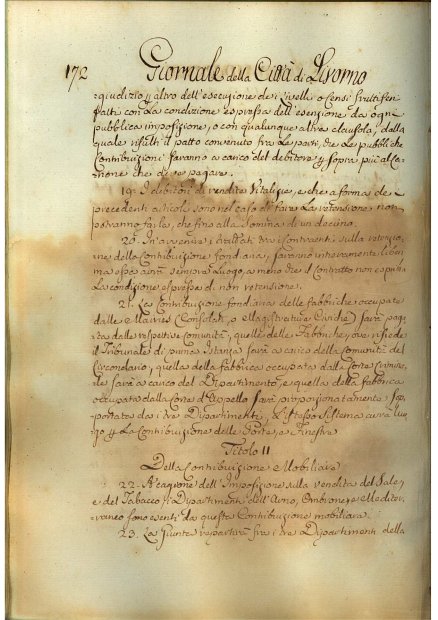 172 Giornale della Città di Livorno
giudizio, y altro dell'esecuzione de i Livelli o Censi fruttiferi
fatti con La condizione espressa dell'esenzione da ogni
pubblica imposizione, o con qualunque altra clausola, dalla
quale risulti il patto convenuto fra Le parti, che Le pubbliche
Contribuzioni saranno a carico del debitore y sopra più al Ca
none che deve pagare.
19. I debitori di rendite Vitalizie, e che a forma de i
precedenti articoli sono nel caso di fare La retensione non
potranno farla, che fino alla somma di un decimo.
20. In avvenire i trattati tra Contraenti sulla retenzio
ne della Contribuzione fondiaria, saranno interamente Liberi
ma essa avrà sempre Luogo, a meno che il Contratto non copia
La condizione espressa di non retensione.
21. La Contribuzione fondiaria delle fabbriche occupate
dalle Mairies Consolati, o Magistrature Civiche sarà paga
ta dalle respettive Comunità, quelle delle Fabbriche, ove risiede
il Tribunale di prima Istanza sarà a carico della Comunità del
Circondario, quella della fabbrica occupata dalla Corte Crimina
le sarà a carico del Dipartimento, e quella della fabbrica
occupata dalla Corte d'Appello sarà proporzionatamente sop
portata da i tre Dipartimenti, L'istesso sistema avrà luo
go y La Contribuzione delle Porte, e Finestre
Titolo II
Della Contribuzione Mobiliare
22. A cagione dell'Imposizione sulla vendita del Sale, y
e del Tabacco i Dipartimenti dell'Arno, Ombrone, e Mediter
raneo sono esenti da questa Contribuzione mobiliare.
23. La Giunta repartirà fra i tre Dipartimenti della